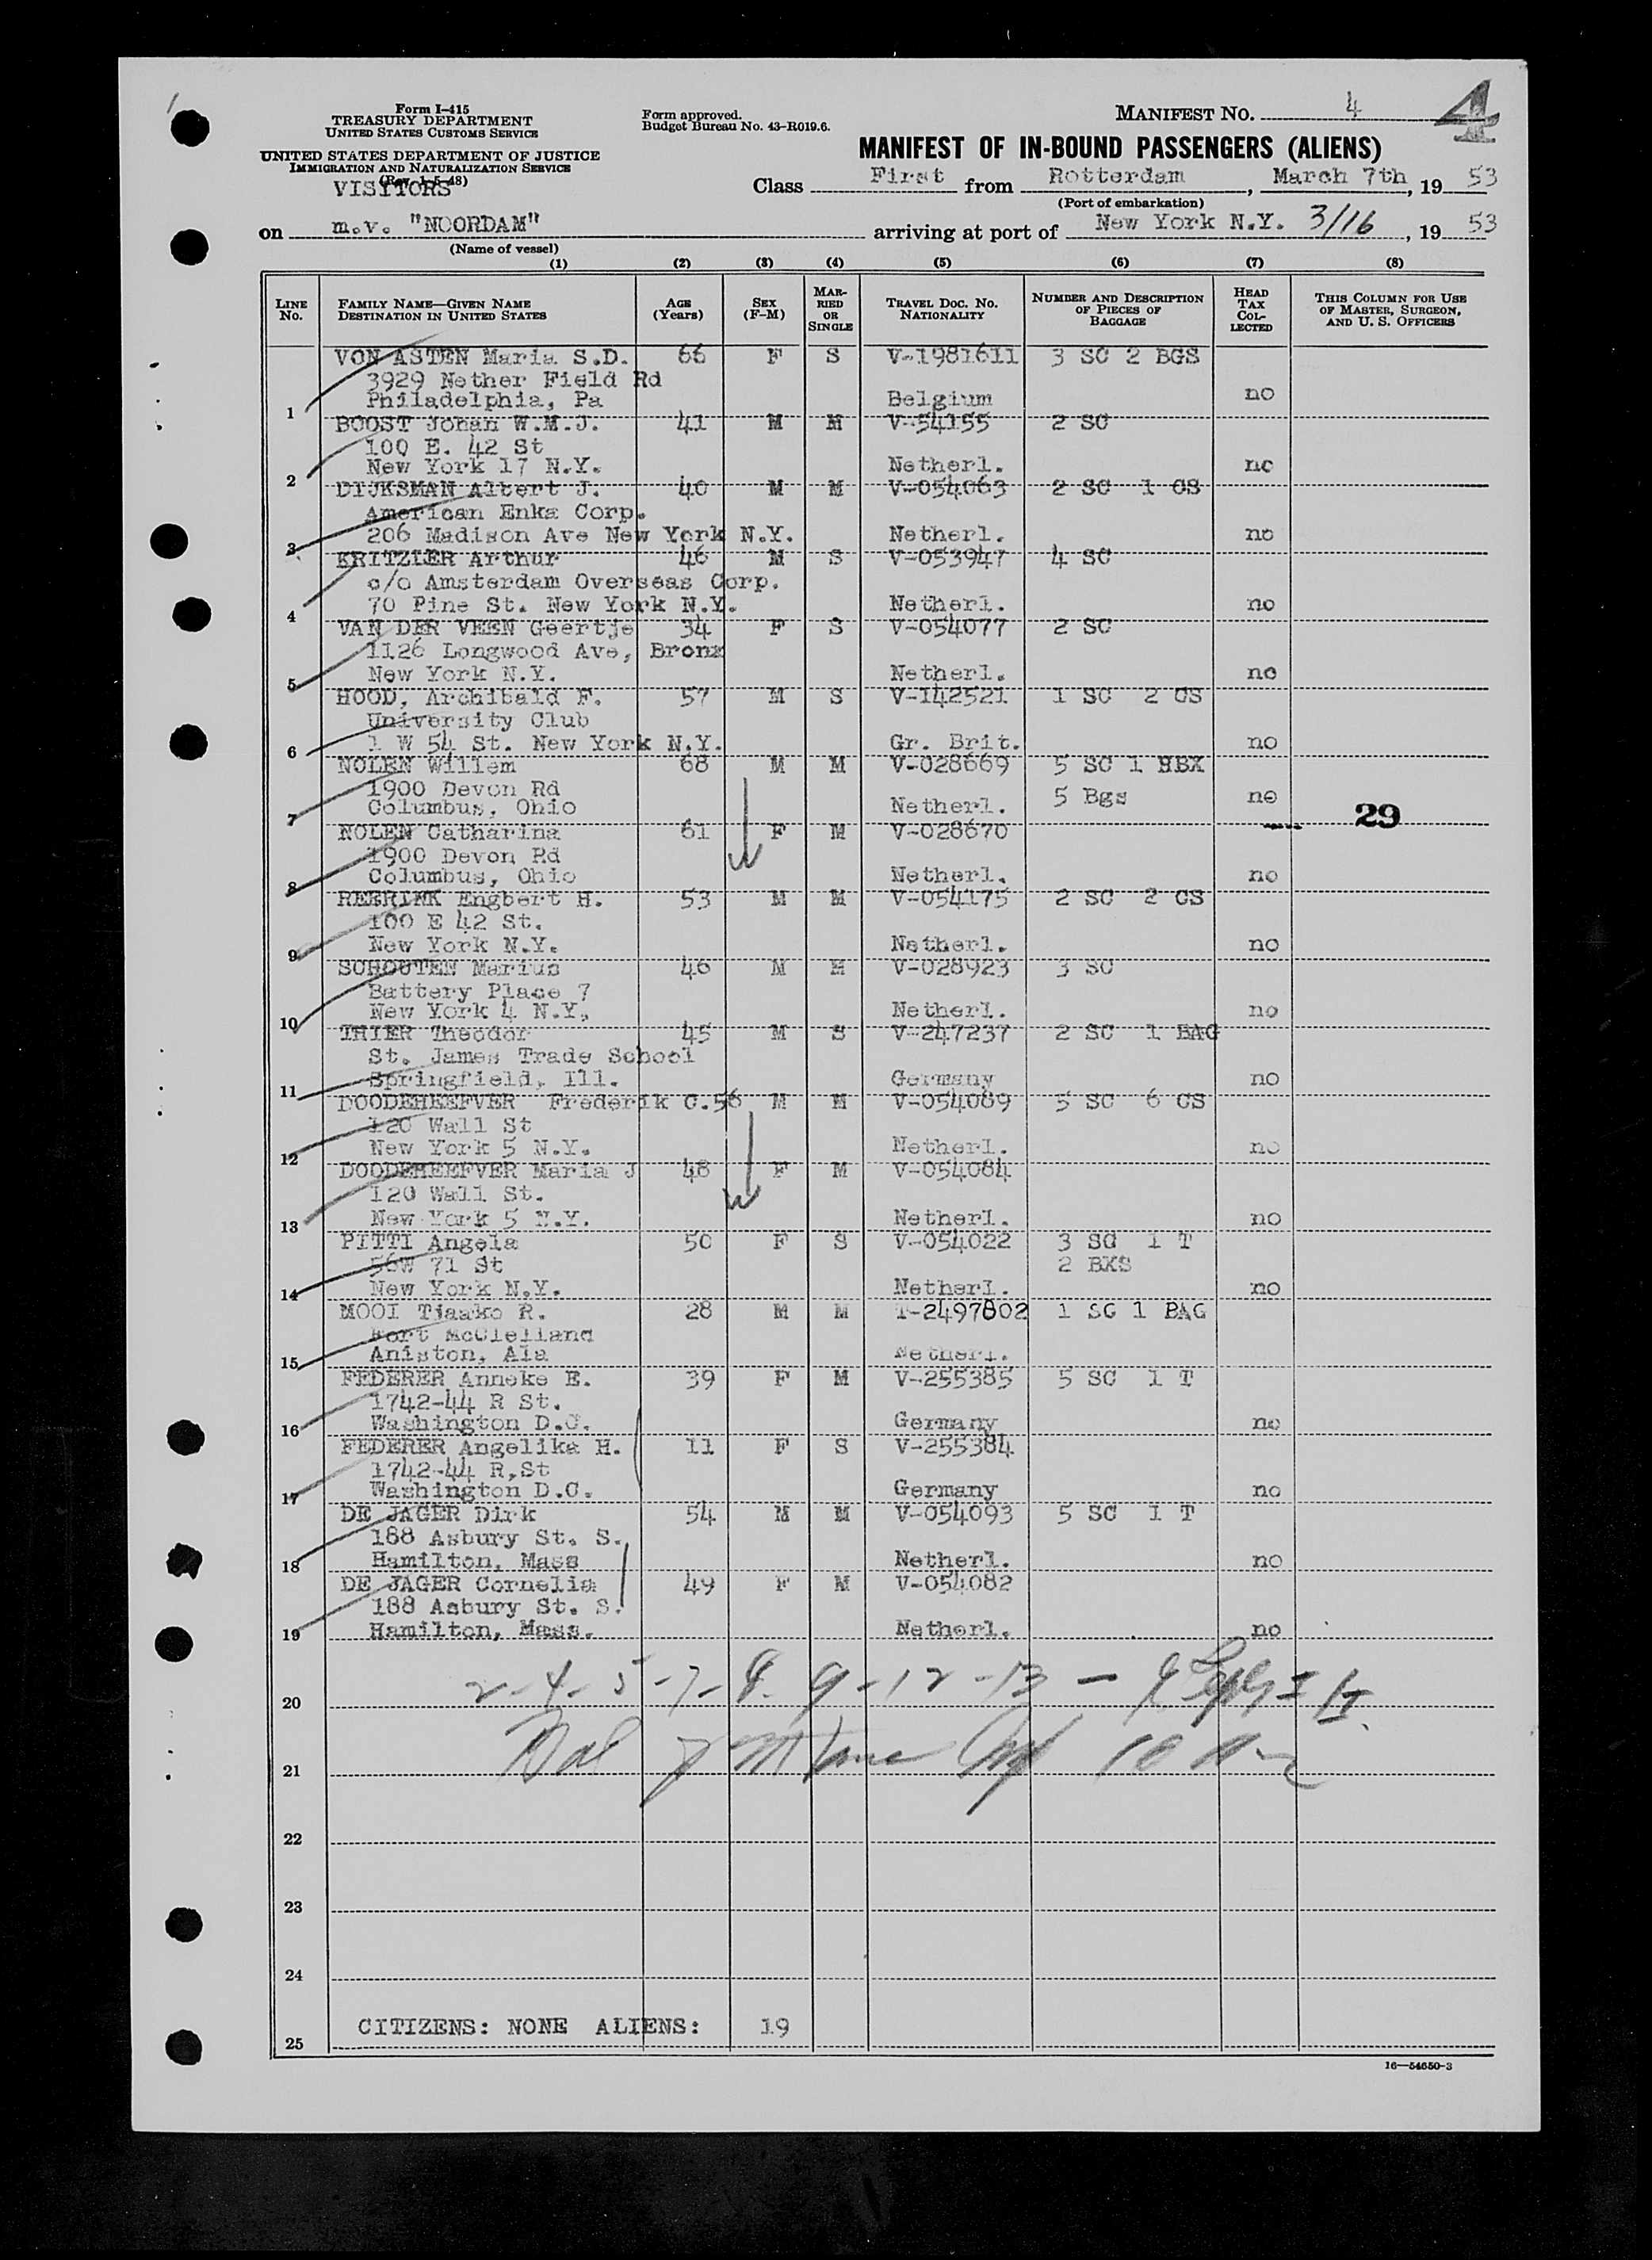 Form I-415
TREASURY DEPARTMENT
UNITED STATES CUSTOMS SERVICE
UNITED STATES DEPARTMENT OF JUSTICE
IMMIGRATION AND NATURALIZATION SERVICE
(Rev. 1-5-48)
VISITORS
Form approved.
Budget Bureau No. 43-R019.6.
MANIFEST NO. 4
4
MANIFEST OF IN-BOUND PASSENGERS (ALIENS)
Class First from Rotterdam, March 7th, 19 53
(Port of embarkation)
on m.v. "NOORDAM" arriving at port of New York N.Y. 3/16, 19 53
(Name of vessel)
(1) (2) (3) (4) (5) (6) (7) (8)
LINE NO. FAMILY NAME—GIVEN NAME DESTINATION IN UNITED STATES AGE (Years) SEX (F-M) MARRIED OR SINGLE TRAVEL DOC. NO. NATIONALITY NUMBER AND DESCRIPTION OF PIECES OF BAGGAGE HEAD TAX COLLECTED THIS COLUMN FOR USE OF MASTER, SURGEON, AND U. S. OFFICERS
VON ASTEN Maria S.D. 66 F S V-1981611 3 SC 2 BGS
3929 Nether Field Rd
1 Philadelphia, Pa Belgium no
BOOST Johan W.M.J. 41 M M V-54155 2 SC
100 E. 42 St
2 New York 17 N.Y. Netherl. no
DIJKSMAN Albert J. 40 M M V-054063 2 SC 1 CS
American Enka Corp.
3 206 Madison Ave New York N.Y. Netherl. no
KRITZLER Arthur 46 M S V-053947 4 SC
c/o Amsterdam Overseas Corp.
4 70 Pine St. New York N.Y. Netherl. no
VAN DER VEEN Geertje 34 F S V-054077 2 SC
1126 Longwood Ave, Bronx
5 New York N.Y. Netherl. no
HOOD, Archibald F. 57 M S V-142521 1 SC 2 CS
University Club
6 1 W 54 St. New York N.Y. Gr. Brit. no
NOLEN Willem 68 M M V-028669 5 SC 1 HBX
1900 Devon Rd 5 Bgs no
7 Columbus, Ohio Netherl. 29
NOLEN Catharina 61 F M V-028670
1900 Devon Rd
8 Columbus, Ohio Netherl. no
REERINK Engbert H. 53 M M V-054175 2 SC 2 CS
100 E 42 St.
9 New York N.Y. Netherl. no
SCHOUTEN Marius 46 M M V-028923 3 SC
Battery Place 7
10 New York 4 N.Y. Netherl. no
THIER Theodor 45 M S V-247237 2 SC 1 BAG
St. James Trade School
11 Springfield, Ill. Germany no
DOODEHEEFVER Frederik C. 56 M M V-054089 5 SC 6 CS
120 Wall St
12 New York 5 N.Y. Netherl. no
DOODEHEEFVER Maria J 48 F M V-054084
120 Wall St.
13 New York 5 N.Y. Netherl. no
PITTI Angela 50 F S V-054022 3 SC 1 T
56W 71 St 2 BXS
14 New York N.Y. Netherl. no
MOOI Tjaako R. 28 M M T-2497802 1 SC 1 BAG
Fort McClelland
15 Aniston, Ala Netherl.
FEDERER Anneke E. 39 F M V-255385 5 SC 1 T
1742-44 R St.
16 Washington D.C. Germany no
FEDERER Angelika H. 11 F S V-255384
1742-44 R.St
17 Washington D.C. Germany no
DE JAGER Dirk 54 M M V-054093 5 SC 1 T
188 Asbury St. S.
18 Hamilton, Mass Netherl. no
DE JAGER Cornelia 49 F M V-054082
188 Asbury St. S.
19 Hamilton, Mass. Netherl. no
2-4-5-7-8-9-12-13 –
20
21
22
23
24
CITIZENS: NONE ALIENS: 19
25
16—54650-3